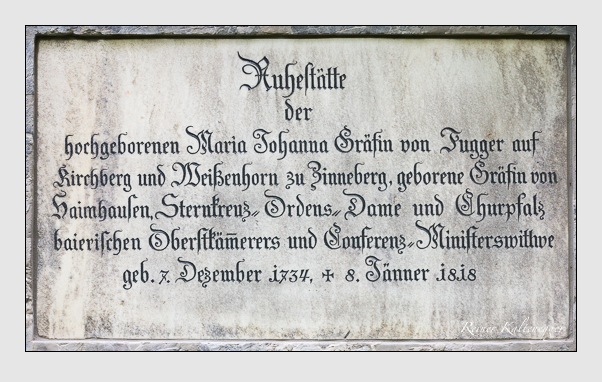 Ruhestätte
der
hochgeborenen Maria Johanna Gräfin von Fugger auf
Kirchberg und Weißenhorn zu Zinneberg, geborene Gräfin von
Haimhausen, Sternkreuz= Ordens= Dame und Churpfalz
baierischen Oberstkäm̅erers und Conferenz=Ministerswittwe
geb. 7. Dezember 1734, ✝ 8. Jänner 1818
Rainer Kaltenegger